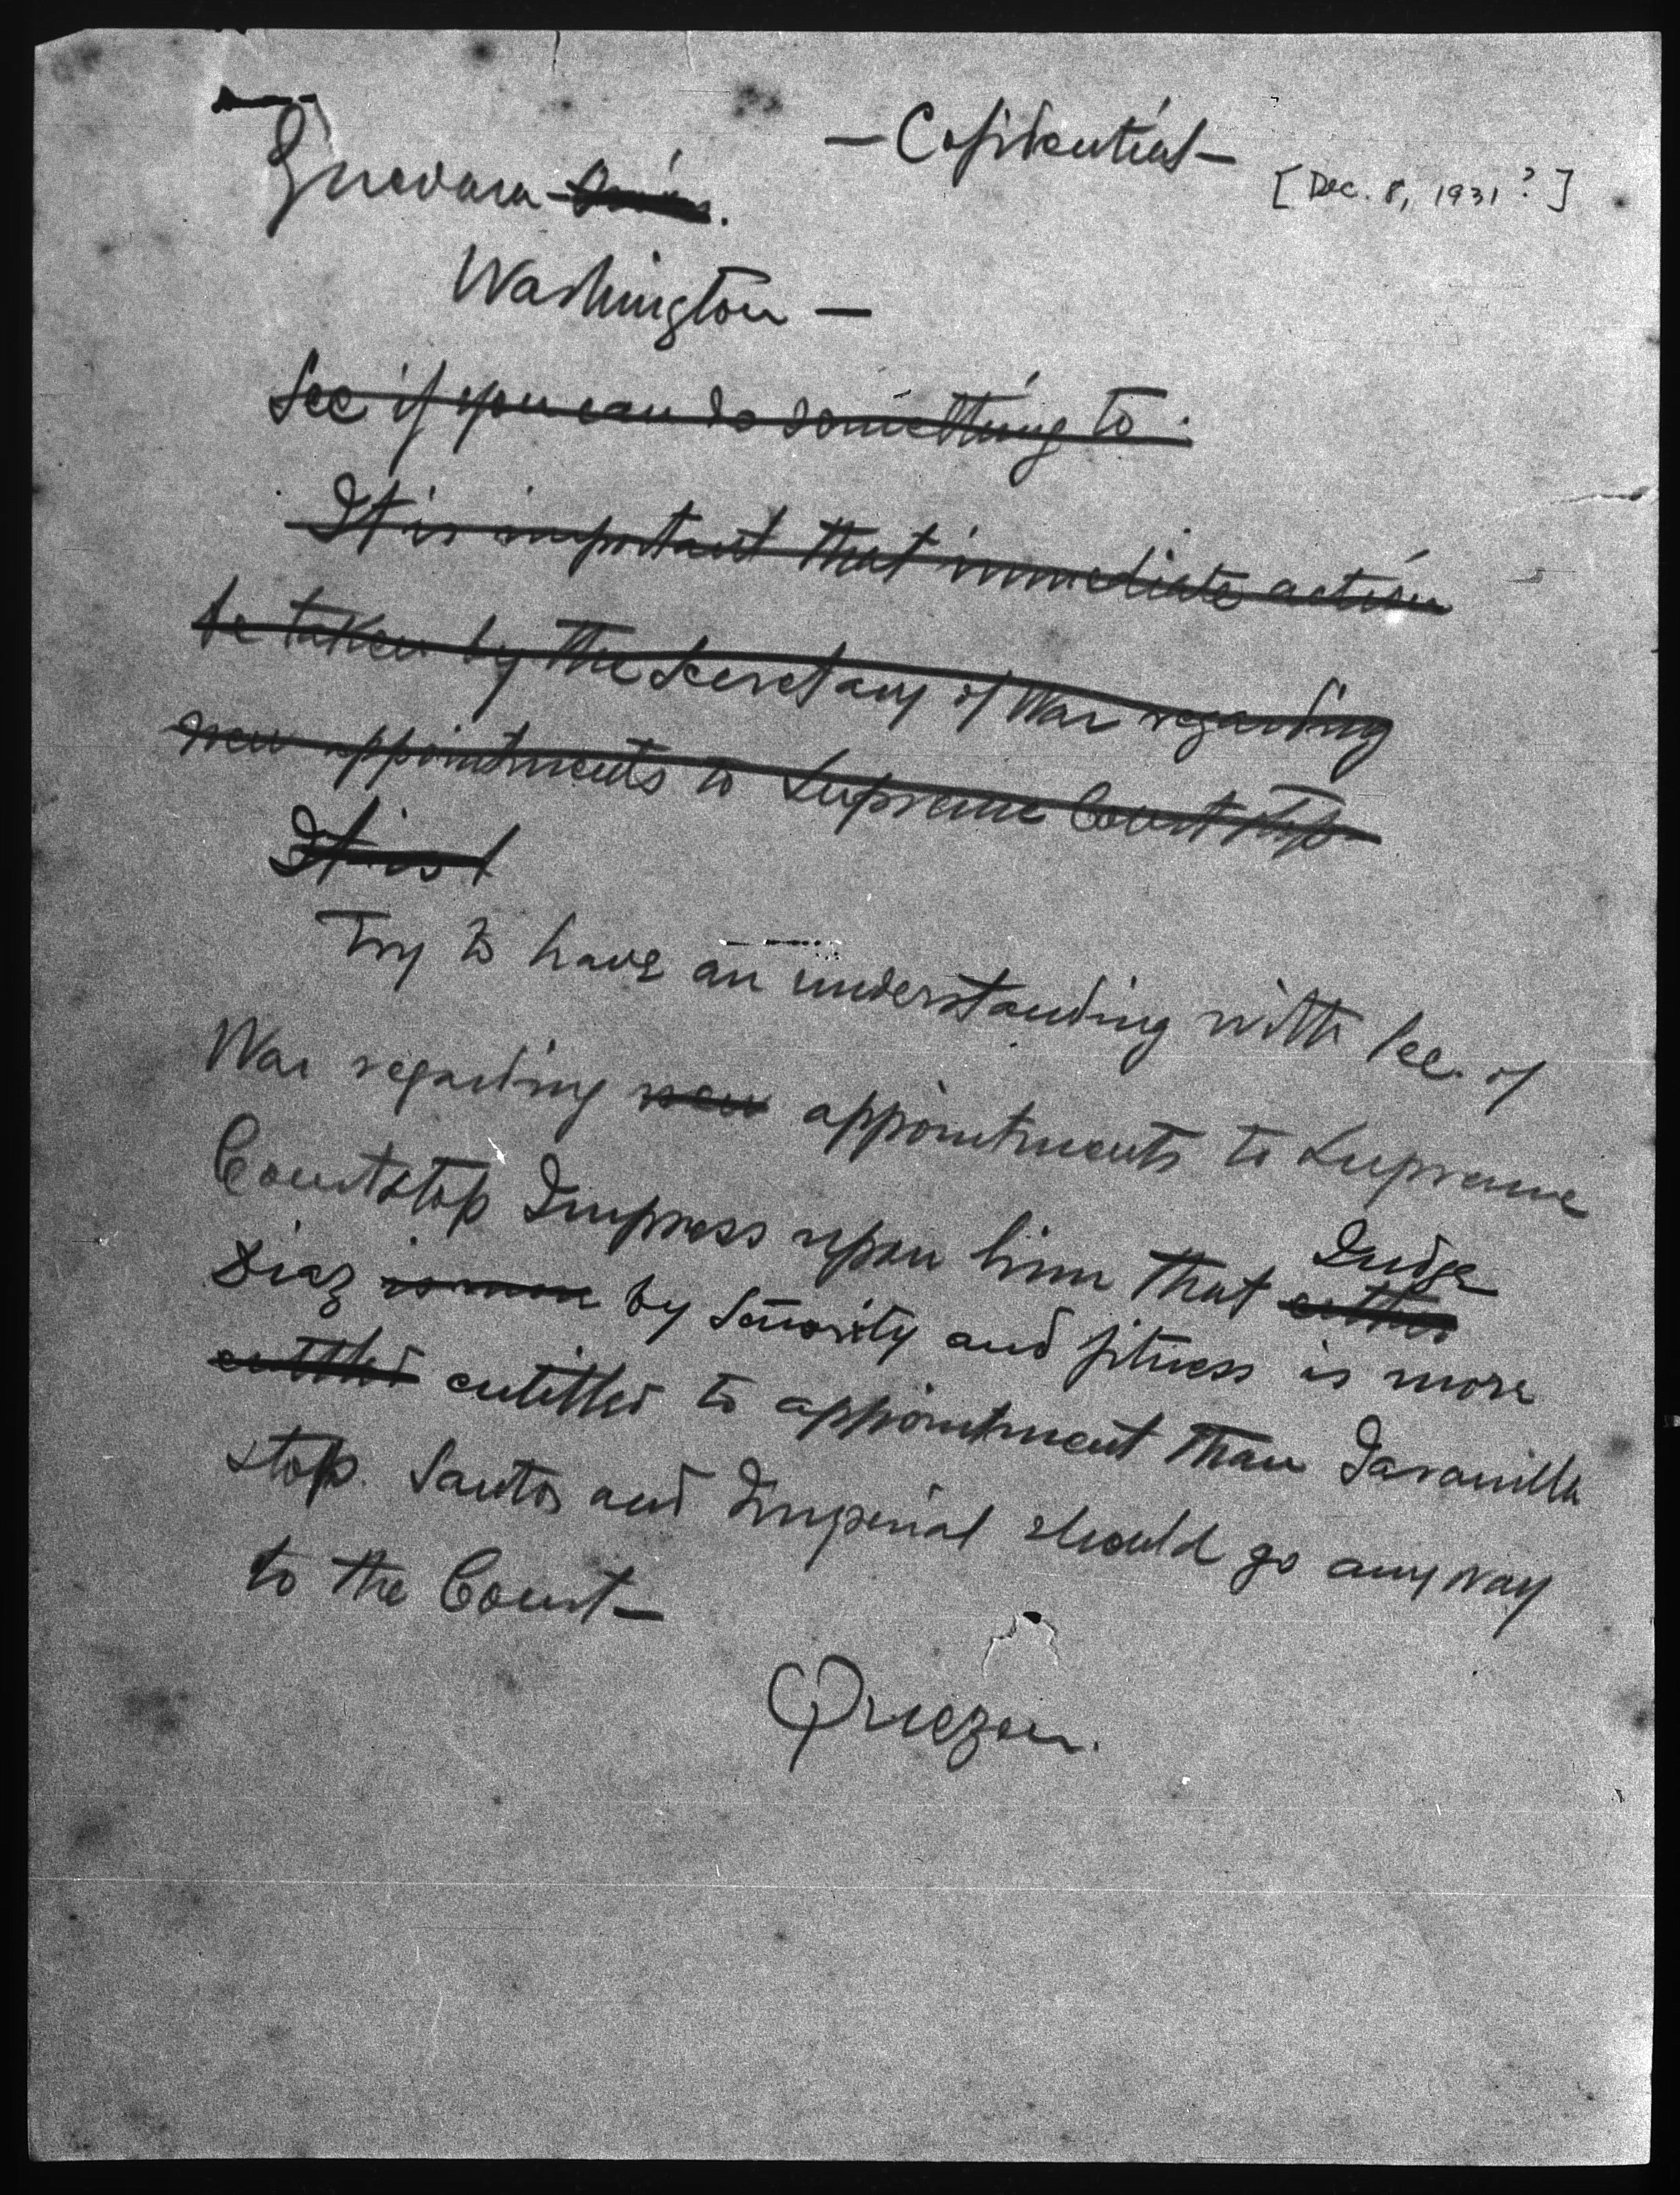 — Cofidential —
[Dec. 8, 1931?]
Guevara
Washington —
See if you can do something to.
It is important that immediate action
be taken by the Secretary of War regarding
new appointments to Supreme Court stop
It is
Try to have an understanding with Sec. of
War regarding new appointments to Supreme
Court stop Impress upon him that Judge
Diaz is more by Senority and fitness is more
entitled entitled to appointment than Jaranilla
stop. Santos and Imperial should go any way
to the Court —
Quezon.